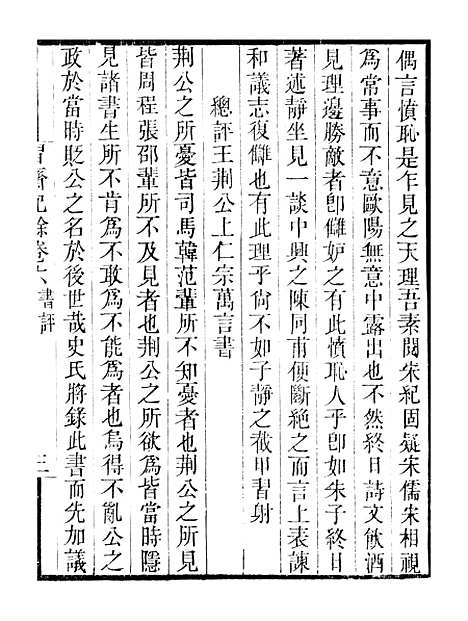 偶言憤恥是乍見之天理吾素閱宋紀固疑宋儒宋相視
為常事而不意歐陽無意中露出也不然終日詩文飲酒
見理邊勝敵者卽讎妒之有此憤恥人乎卽如朱子終日
著述靜坐見一談中興之陳同甫便斷絶之而言上表諫
和議志復讎也有此理乎尙不如子靜之裁甲習射
總評王荆公上仁宗萬言書
荆公之所憂皆司馬韓范輩所不知憂者也荆公之所見
皆周程張邵輩所不及見者也荆公之所欲為皆當時隱
見諸書生所不肯為不敢為不能為者也烏得不亂公之
政於當時貶公之名於後世哉史氏將錄此書而先加議
習齋記餘卷六書評
三